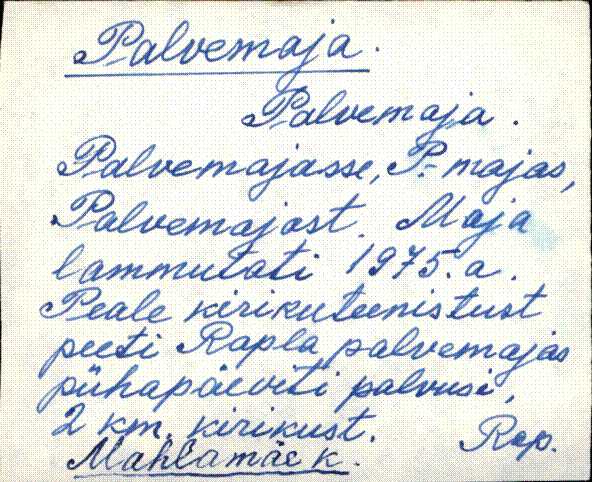 Palvemaja.
Palvemaja.
Palvemajasse, P.-majas,
Palvemajast. Maja
lammutati 1975. a.
Peale kirikuteenistust
peeti Rapla palvemajas
pühapäeviti palvusi,
2 km. kirikust.
Rap.
Mahlamäe k.